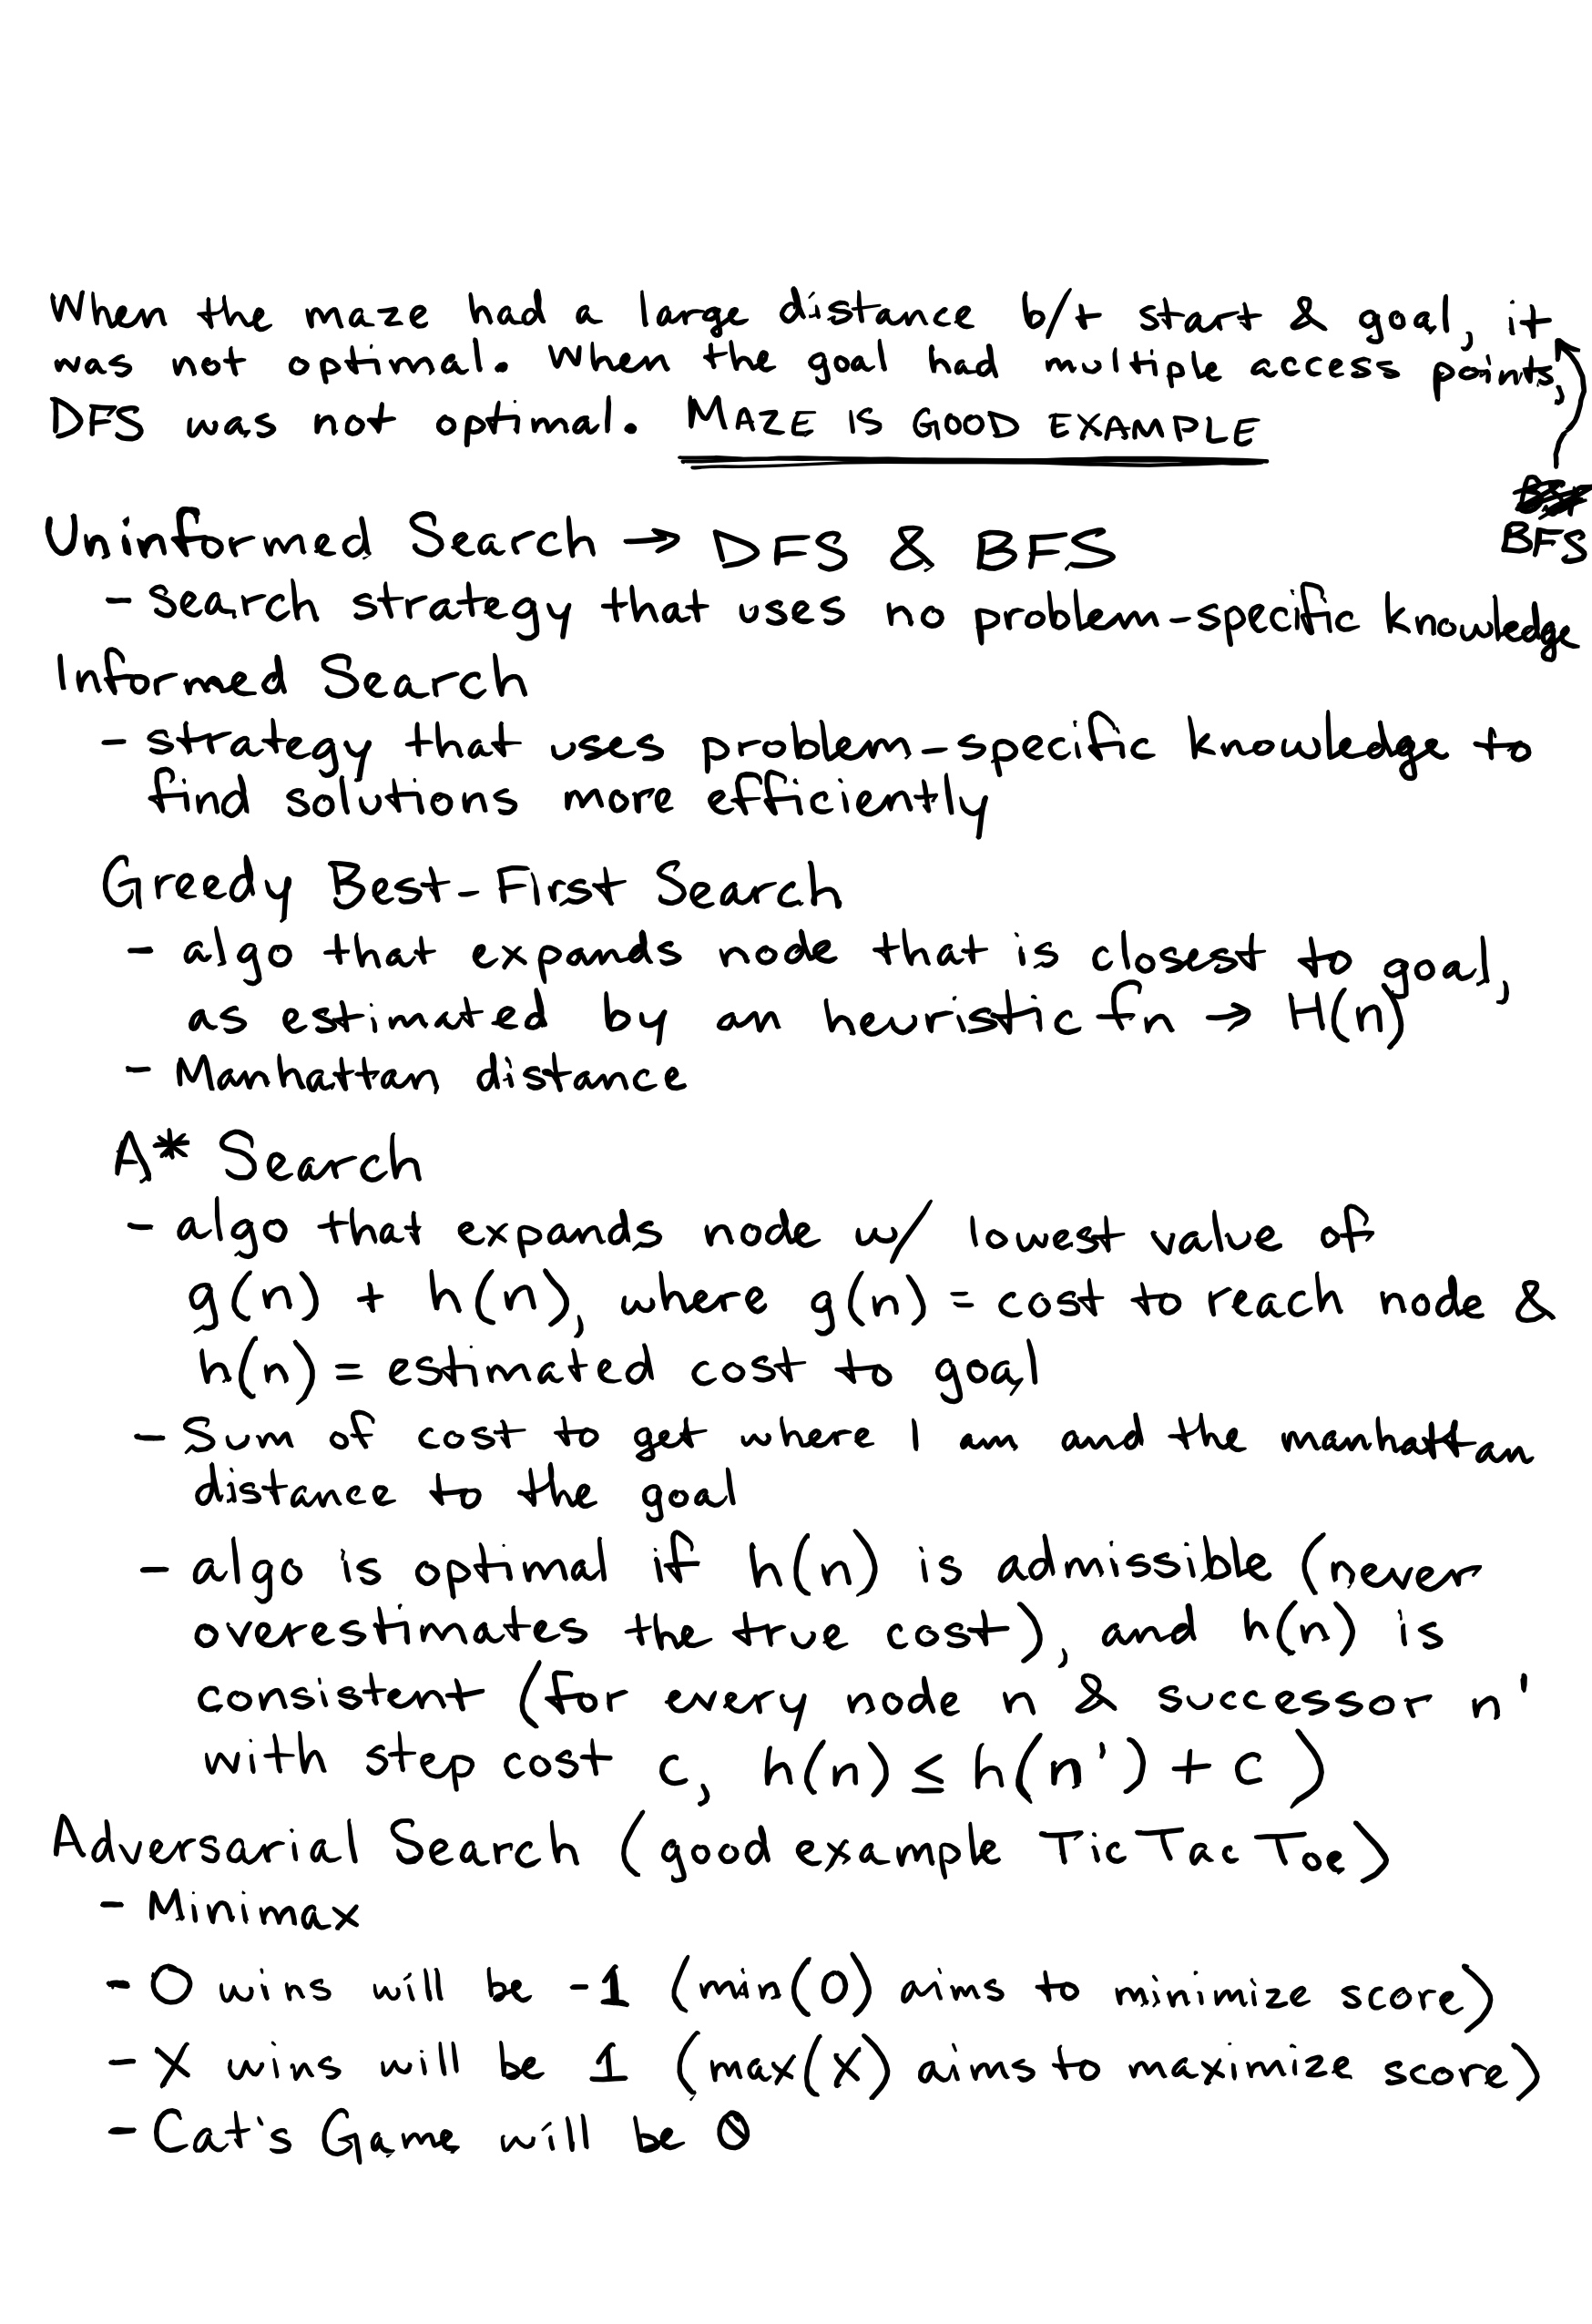 When the maze had a large distance b/t start & goal, it
was not optimal. When the goal had multiple access points,
DFS was not optimal. MAZE IS GOOD EXAMPLE
BFS
Uninformed Search → DFS & BFS
- search strategy that uses no problem-specific knowledge
Informed Search
- strategy that uses problem-specific knowledge to
find solutions more efficiently
Greedy Best-First Search
- algo that expands node that is closest to goal,
as estimated by an heuristic fn → H(n)
- Manhattan distance
A* Search
- algo that expands node w/ lowest value of
g(n) + h(n), where g(n) = cost to reach node &
h(n) = estimated cost to goal
- Sum of cost to get where I am and the manhattan
distance to the goal
- algo is optimal if h(n) is admissible (never
overestimates the true cost), and h(n) is
consistent (for every node n & successor n'
with step cost c, h(n) ≤ h(n') + c )
Adversarial Search (good example Tic Tac Toe)
- Minimax
- O wins will be -1 (min(O) aims to minimize score)
- X wins will be 1 (max(X) aims to maximize score)
- Cat's Game will be 0